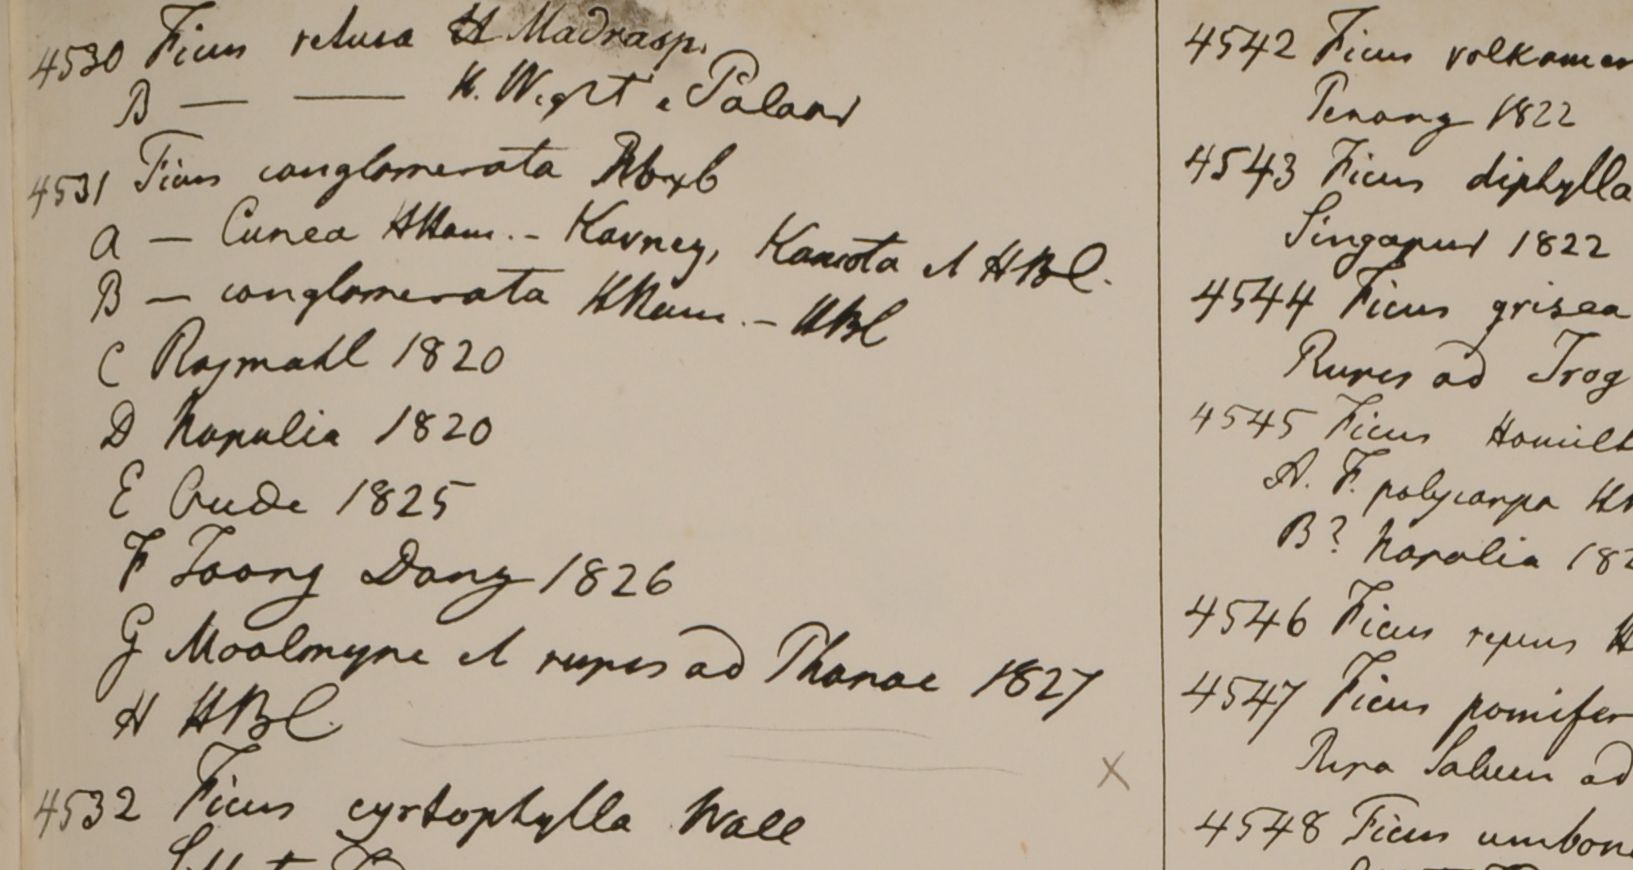 4530 Ficus retusa H Madrasp.
B — — H. Wight e Palam
4531 Ficus conglomerata Roxb
A — Cunea HHam. - Kavney, et HBC.
B — conglomerata HHam. - HBC
C Rajmahl 1820
D Napalia 1820
E Oude 1825
F Toong Dong 1826
G Moalmyne et rupes ad 1827
H HBC.
4532 Ficus cyrtophylla Wall
4542 Ficus volkamer
Penang 1822
4543 Ficus diphylla
Singapur 1822
4544 Ficus grisea
Rupes ad Trog
4545 Ficus Hamilt
A. F. polycarpa H
B? Napalia 182
4546 Ficus repens H
4547 Ficus pomifer
Ripa Saluen ad
4548 Ficus umbon